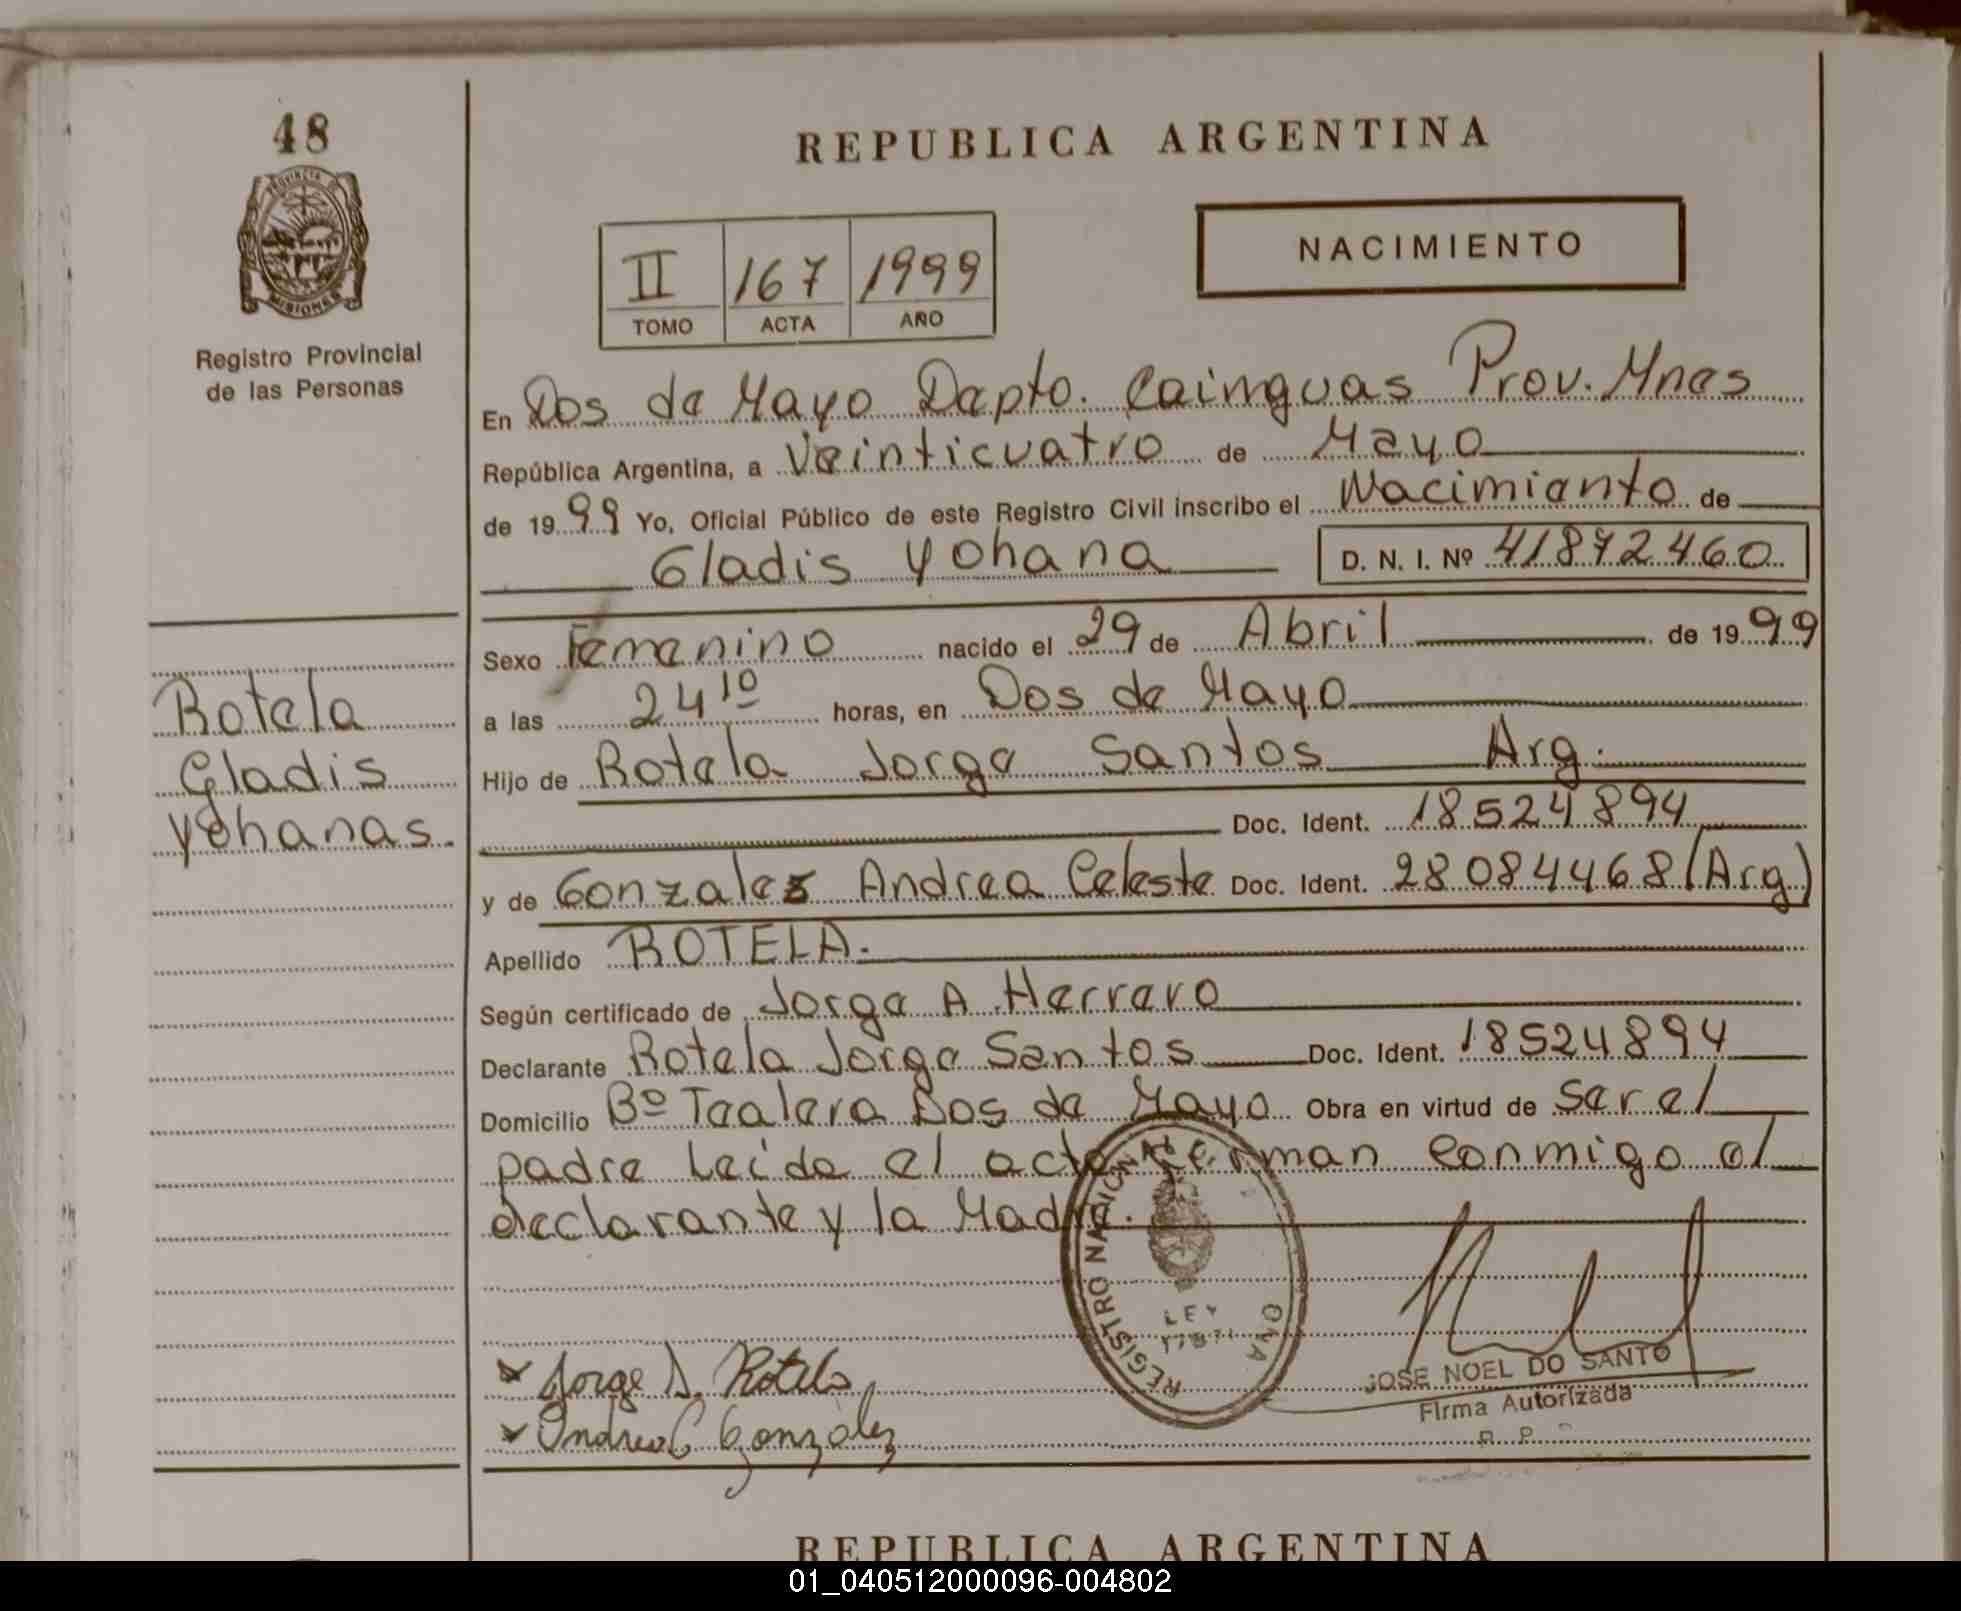 48
REPUBLICA ARGENTINA
PROVINCIA D
MISIONES
Registro Provincial
de las Personas
NACIMIENTO
II 167 1999
TOMO ACTA AÑO
En Dos de Mayo Dapto. Cainguas Prov. Mnes
República Argentina, a Veinticuatro de Mayo
de 19 99 Yo, Oficial Público de este Registro Civil inscribo el Nacimianto de
Gladis Yohana D. N. I. Nº 41872460
Sexo Femenino nacido el 29 de Abril de 19 99
a las 24 10 horas, en Dos de Mayo
Rotela
Gladis
Yohanas.
Hijo de Rotela Jorge Santos Arg.
Doc. Ident. 18524894
y de Gonzalez Andrea Celeste Doc. Ident. 28084468 (Arg)
Apellido ROTELA.
Según certificado de Jorge A Herrero
Declarante Rotela Jorge Santos Doc. Ident. 18524894
Domicilio Bº Tealera Dos de Mayo Obra en virtud de ser el
padre Leida el acta Firman conmigo el
declarante y la Madre.
REGISTRO NACIONAL
LEY
17671
JOSE NOEL DO SANTO
Firma Autorizada
R. P.
Jorge S. Rotela
Andrea C Gonzalez
REPUBLICA ARGENTINA
01_040512000096-004802